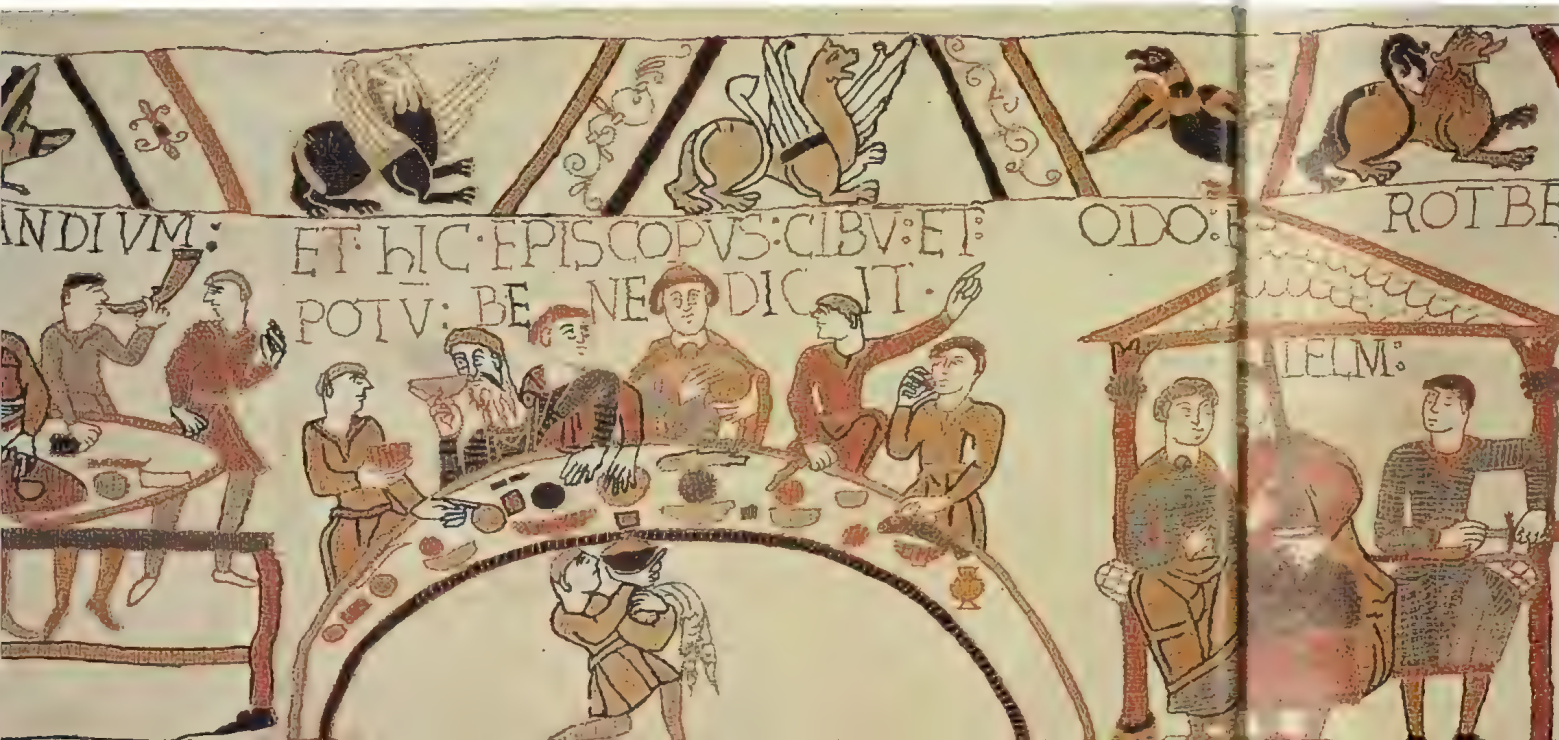 ANDIVM:
ET· hIC·EPISCOPVS:CIBV:ET:
POTV̄: BE NE DIC IT·
ODO:
ROTBE
LELM: